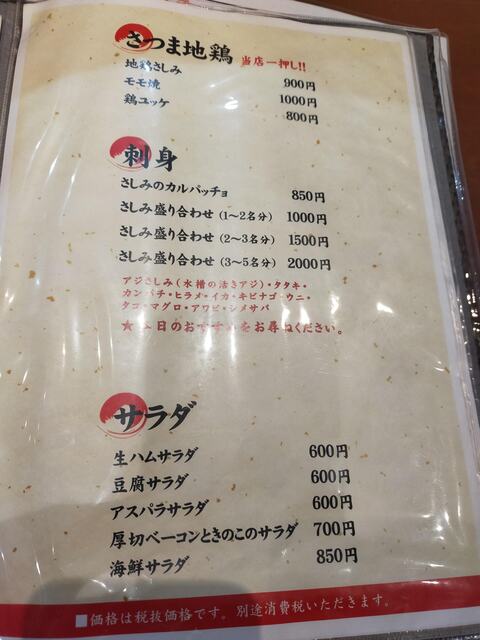 さつま地鶏 当店一押し!!
地鶏さしみ 900円
モモ焼 1000円
鶏ユッケ 800円
刺身
さしみのカルパッチョ 850円
さしみ盛り合わせ (1〜2名分) 1000円
さしみ盛り合わせ (2〜3名分) 1500円
さしみ盛り合わせ (3〜5名分) 2000円
アジさしみ(水槽の活きアジ)・タタキ・
カンパチ・ヒラメ・イカ・キビナゴ・ウニ・
タコ・マグロ・アワビ・シメサバ
★本日のおすすめをお尋ねください。
サラダ
生ハムサラダ 600円
豆腐サラダ 600円
アスパラサラダ 600円
厚切ベーコンときのこのサラダ 700円
海鮮サラダ 850円
■価格は税抜価格です。別途消費税いただきます。